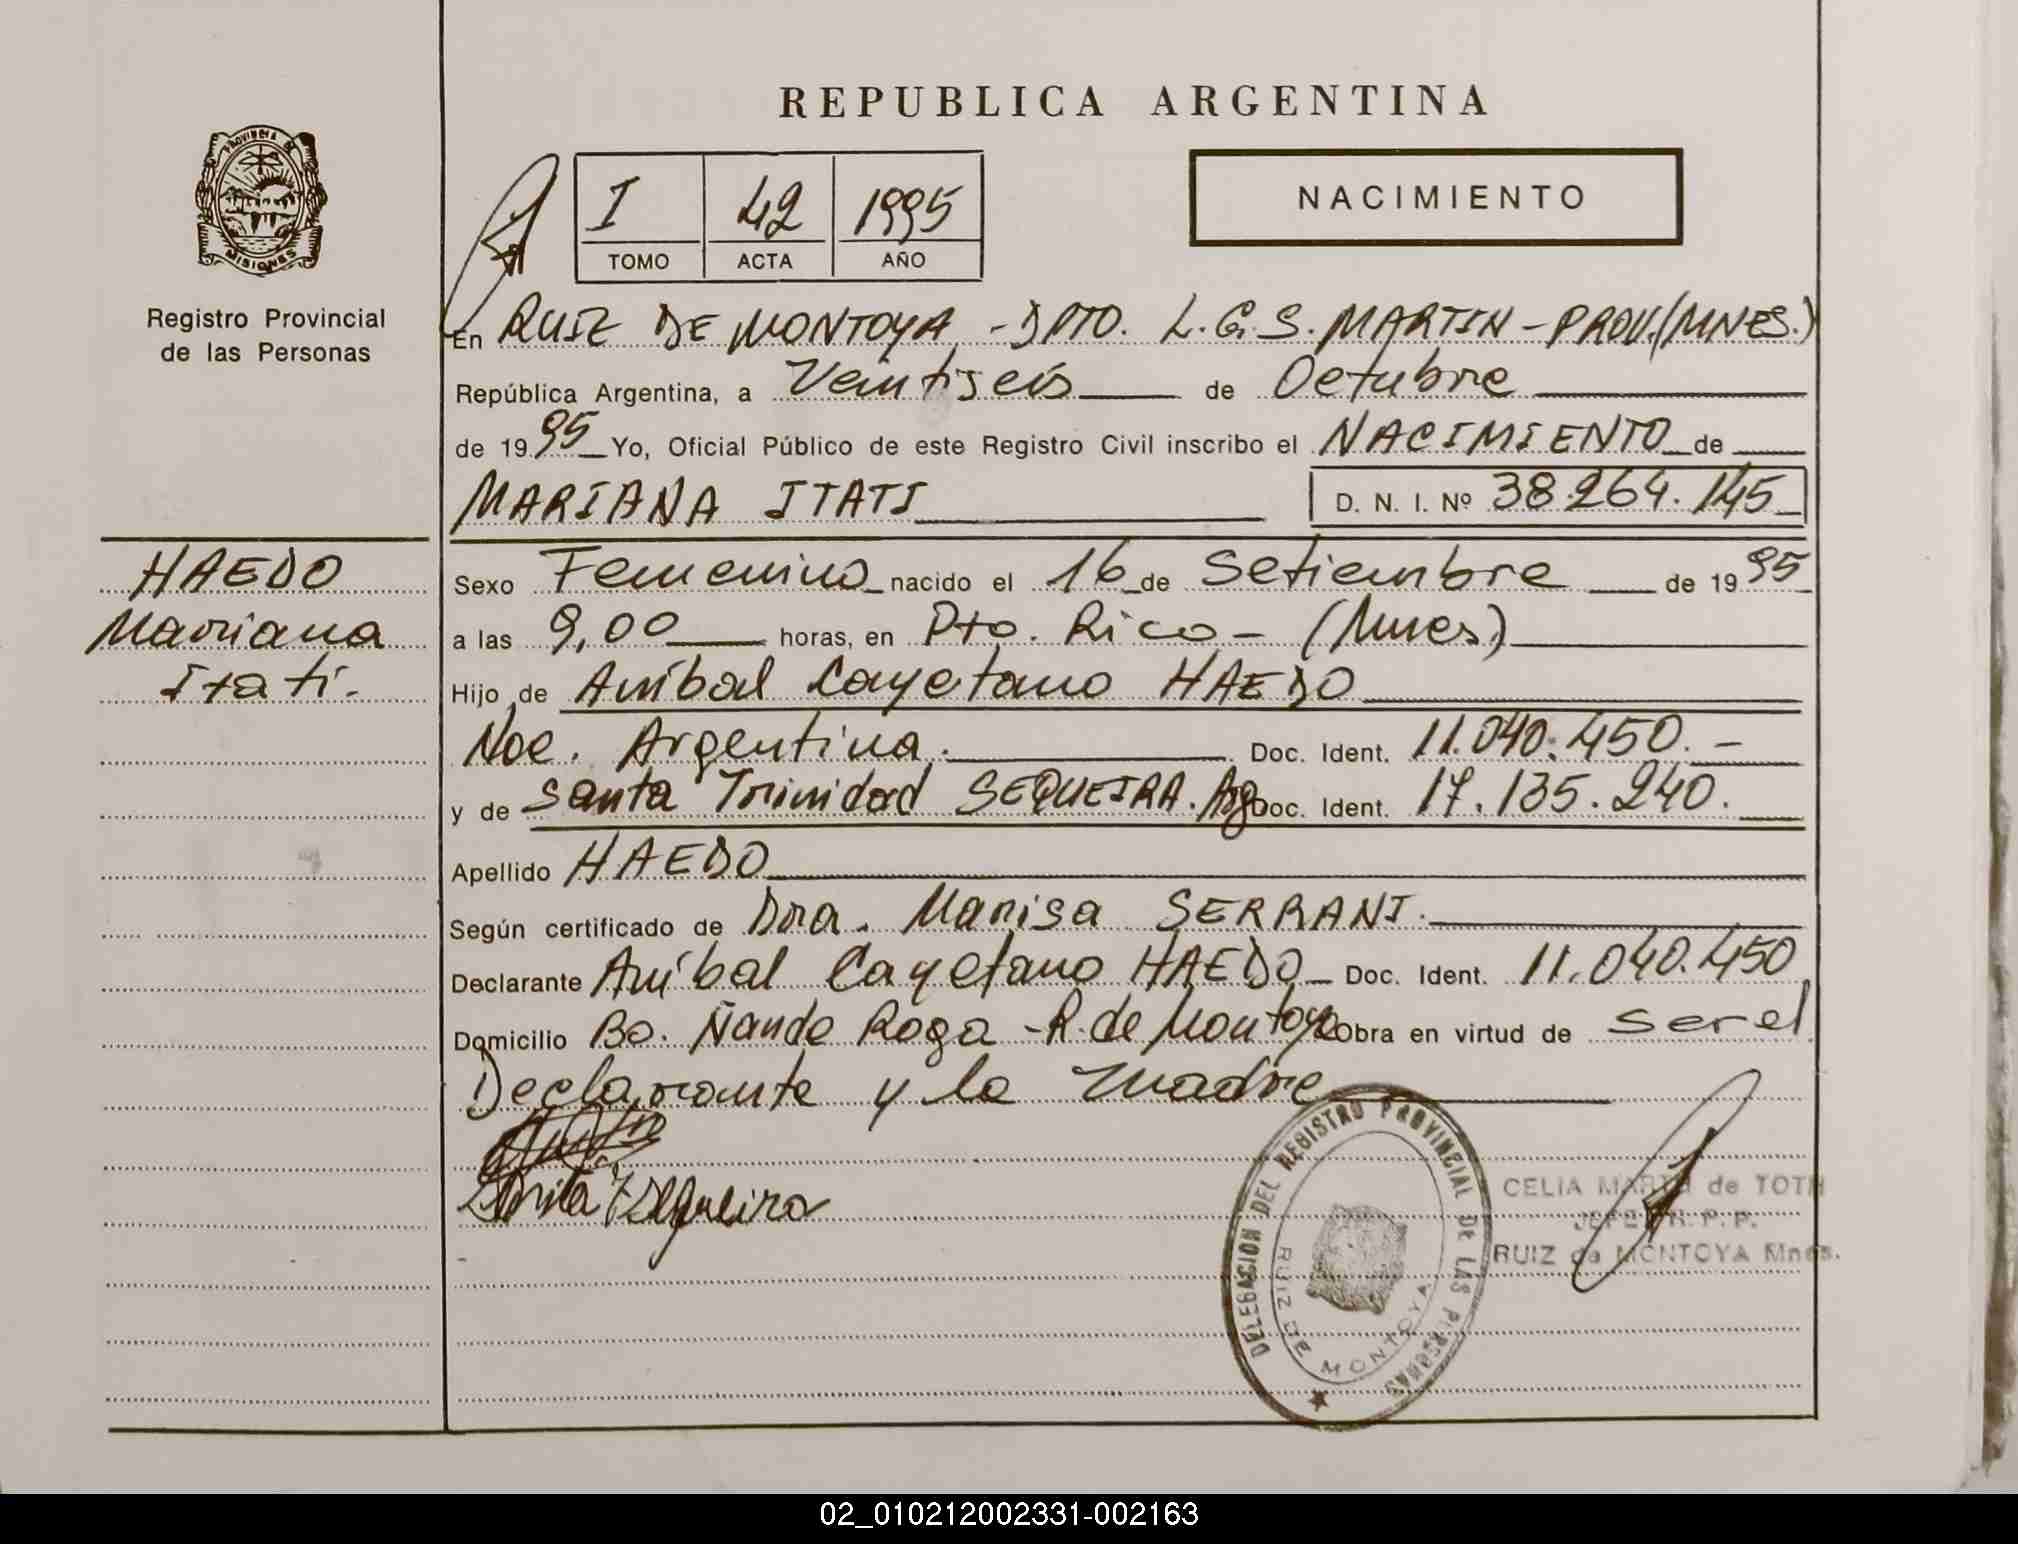 REPUBLICA ARGENTINA
PROVINCIA DE
MISIONES
Registro Provincial
de las Personas
I 42 1995
TOMO ACTA AÑO
NACIMIENTO
En RUIZ DE MONTOYA - DPTO. L.G.S. MARTIN - PROV. (MNES.)
República Argentina, a Veintiseis de Octubre
de 1995 Yo, Oficial Público de este Registro Civil inscribo el NACIMIENTO de
MARIANA ITATI D. N. I. Nº 38.264.145
HAEDO
Mariana
Itatí.
Sexo Femenino nacido el 16 de Setiembre de 1995
a las 9,00 horas, en Pto. Rico - (Mnes)
Hijo de Aníbal Cayetano HAEDO
Nac. Argentina. Doc. Ident. 11.040.450.-
y de Santa Trinidad SEQUEIRA. Arg. Doc. Ident. 17.135.240.
Apellido HAEDO
Según certificado de Dra. Marisa SERRANI.
Declarante Aníbal Cayetano HAEDO Doc. Ident. 11.040.450
Domicilio Bo. Ñande Roga - R. de Montoya Obra en virtud de ser el
Declarante y la madre
Sequeira
DELEGACION DEL REGISTRO PROVINCIAL DE LAS PERSONAS
RUIZ DE MONTOYA
CELIA MARTA de TOTH
JEFE R. P. P.
RUIZ de MONTOYA Mnes.
02_010212002331-002163